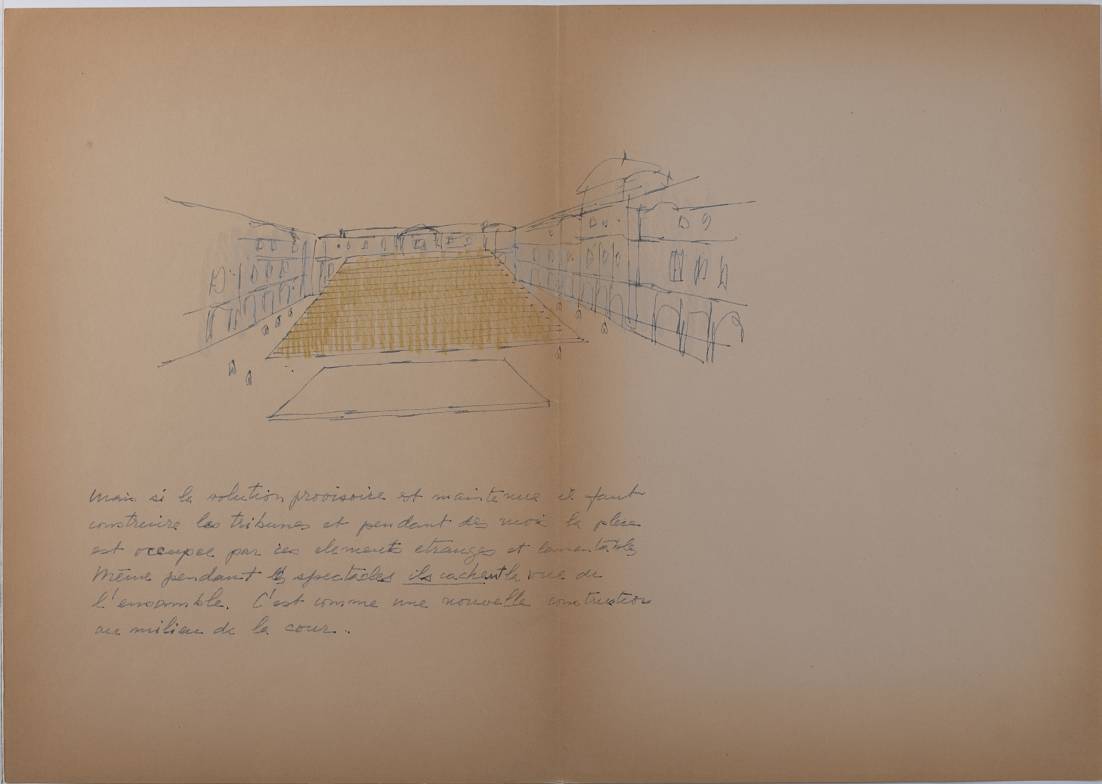 Mais si la solution provisoire est maintenue il faut
construire les tribunes et pendant des mois la place
est occupee par ces elements etranges et lamentables
Même pendant les spectacles ils cachent la vue de
l'ensemble. C'est comme une nouvelle construction
au milieu de la cour.